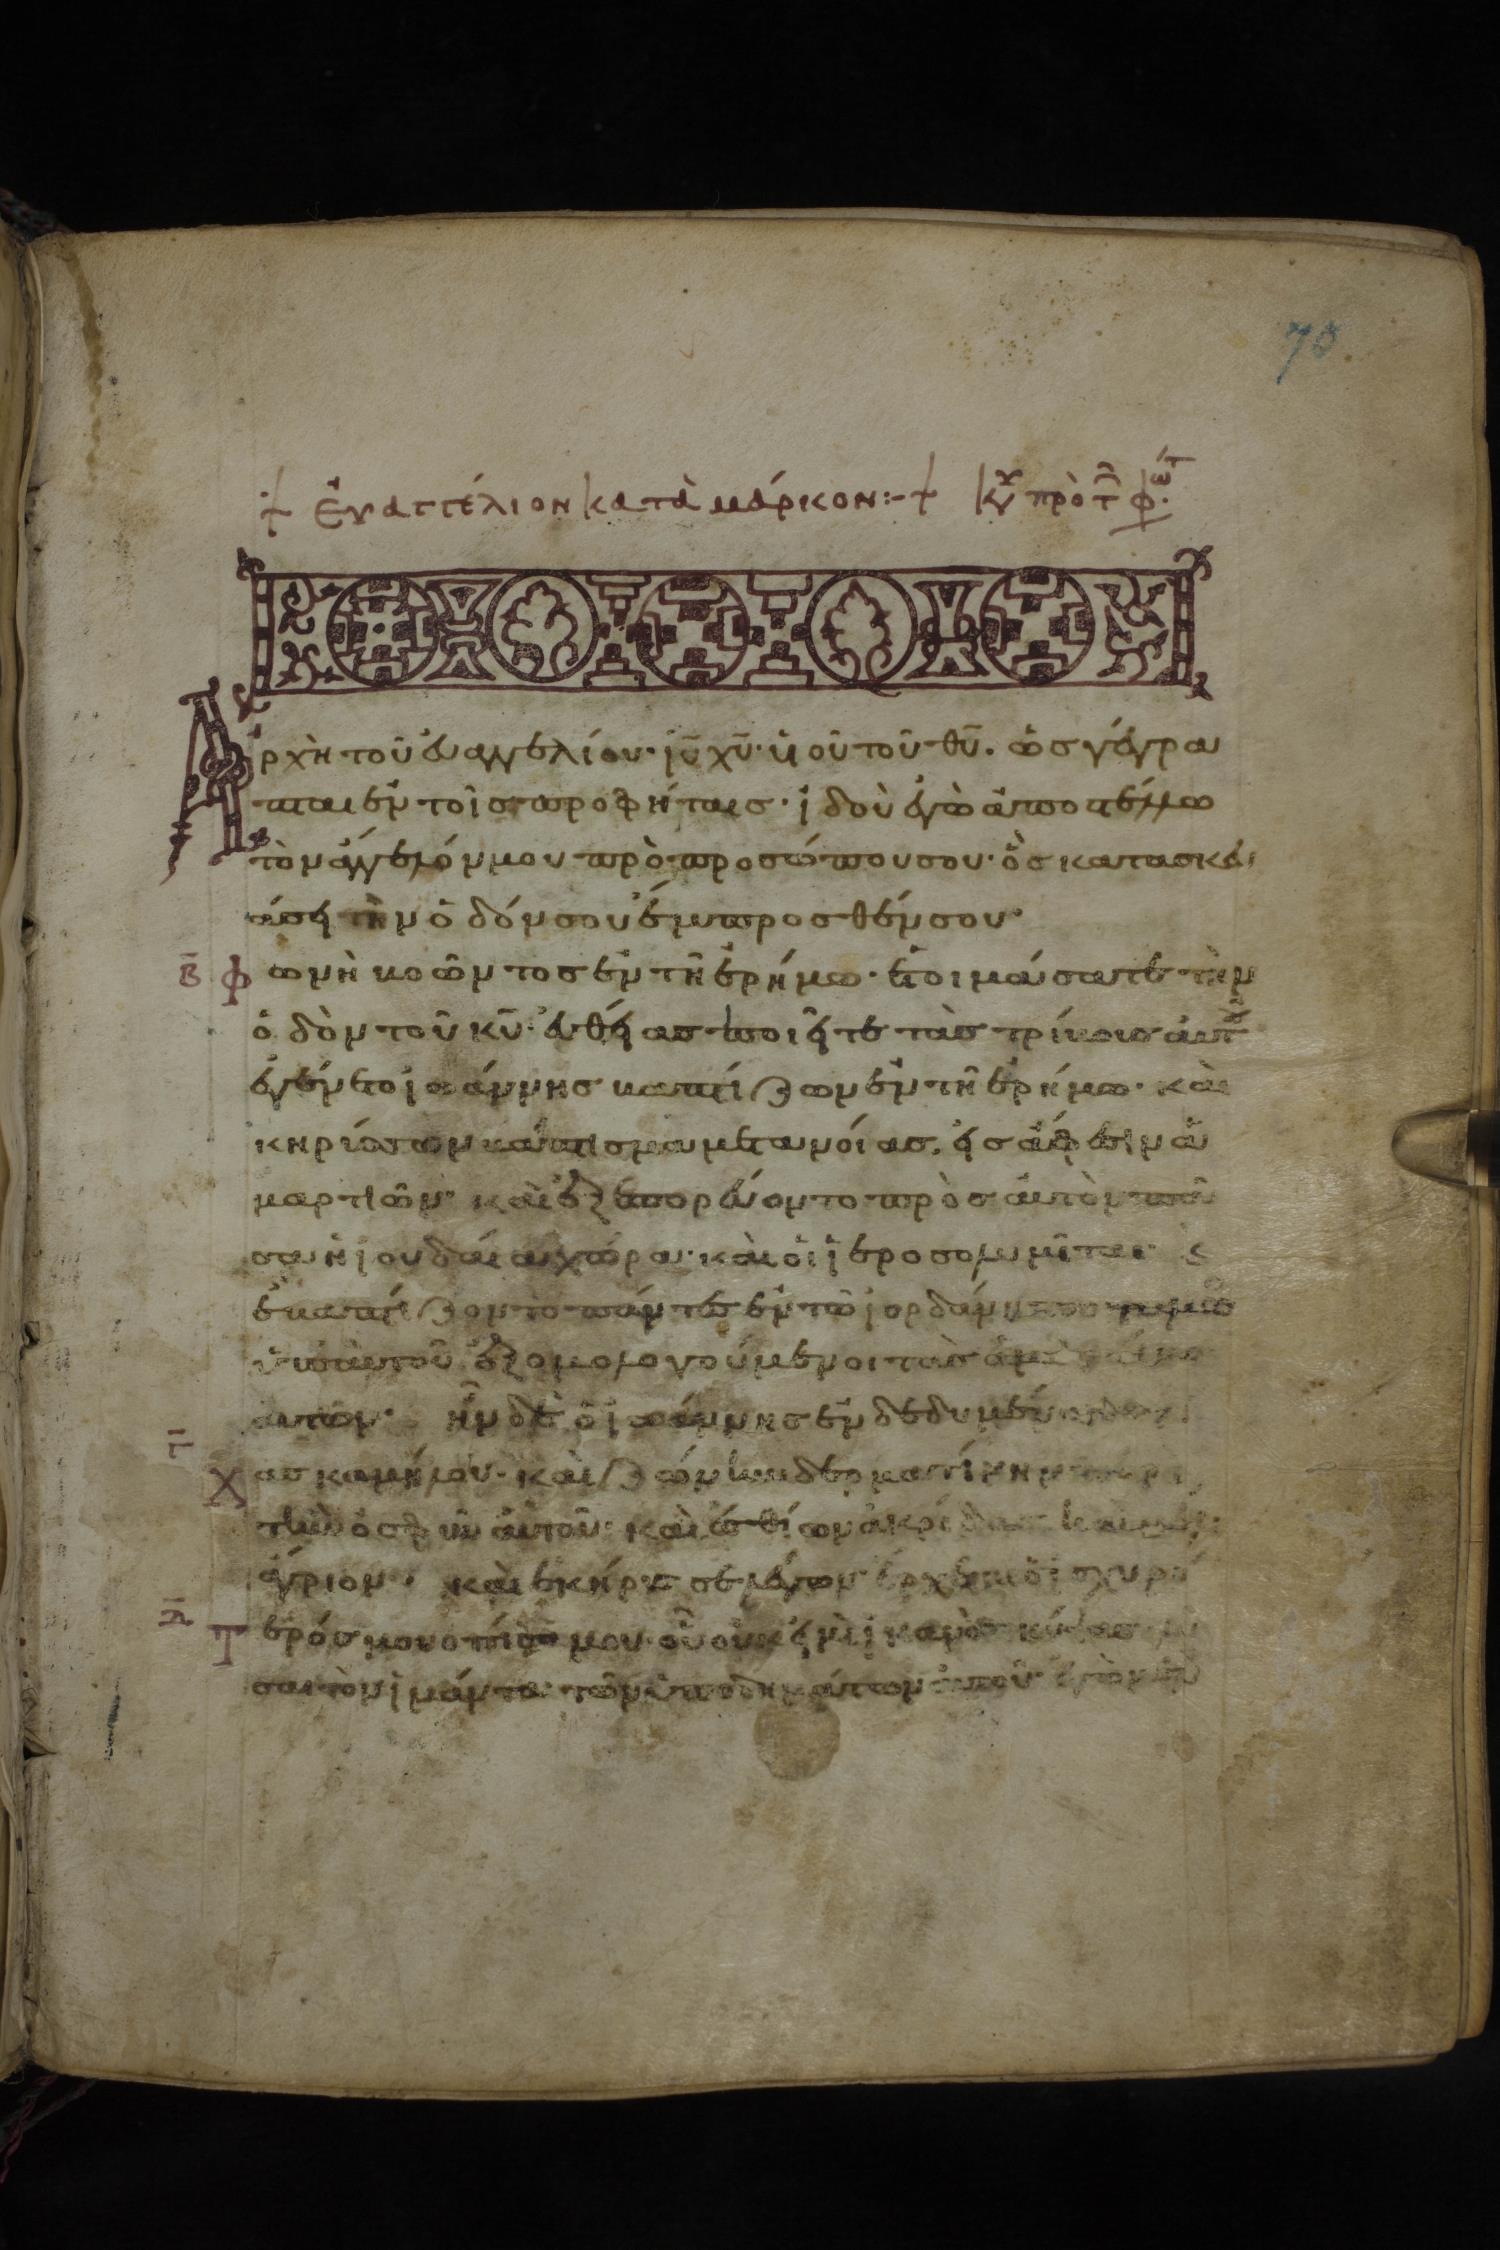 70
+ Ἐυαγγέλιον κατὰ μάρκον:-+ Κυ πρὸ τ φώτ
Ἀρχὴ τοῦ ἐυαγγελίου· ἰῡ χῡ· ὑιοῦ τοῦ θῡ. ὡσ γέγρα
πται ἐν τοῖσ προφήταισ· ἰδοὺ ἐγὼ ἀποστέλλω
τὸν ἄγγελόν μου πρὸ προσώπου σου· ὃσ κατασκε
υάσει τὴν ὁδόν σου ἔμπροσθέν σου·
β Φωνὴ βοῶντοσ ἐν τῆ ἐρήμω· ἑτοιμάσατε τὴν
ὁδὸν τοῦ κῡ· ἐυθείασ ποιεῖτε τὰσ τρίβουσ ἀυτοῦ
ἐγένετο ἰωάννησ βαπτίζων ἐν τῆ ἐρήμω· καὶ
κηρίσσων βάπτισμα μετανοίασ. εἰσ ἄφεσιν ἁ
μαρτιῶν· καὶ ἐξεπορεύοντο πρὸσ ἀυτὸν πᾶ
σα ἡ ἰουδαία χώρα· καὶ οἱ ἱεροσολυμῖται
ἐβαπτίζοντο πάντεσ ἐν τῶ ἰορδάνη
ὑπ' ἀυτοῦ ἐξομολογούμενοι τὰσ
αυτῶν· ἦν δὲ ὁ ἰωάννησ ἐνδεδυμένοσ
γ Τ
Χασ καμήλου· καὶ ζώνην δερματίνην
τὴν ὀσφῦν ἀυτοῦ· καὶ ἐσθίων ἀκρίδασ
ἄγριον· καὶ ἐκήρυσσε λέγων· ἔρχεται ὁ ἰσχυρό
δ Τ
ερόσ μου ὀπίσω μου· οὗ οὐκ εἰμὶ ἱκανὸσ κύψασ
σαι τὸν ἱμάντα τῶν ὑποδημάτων ἀυτοῦ·